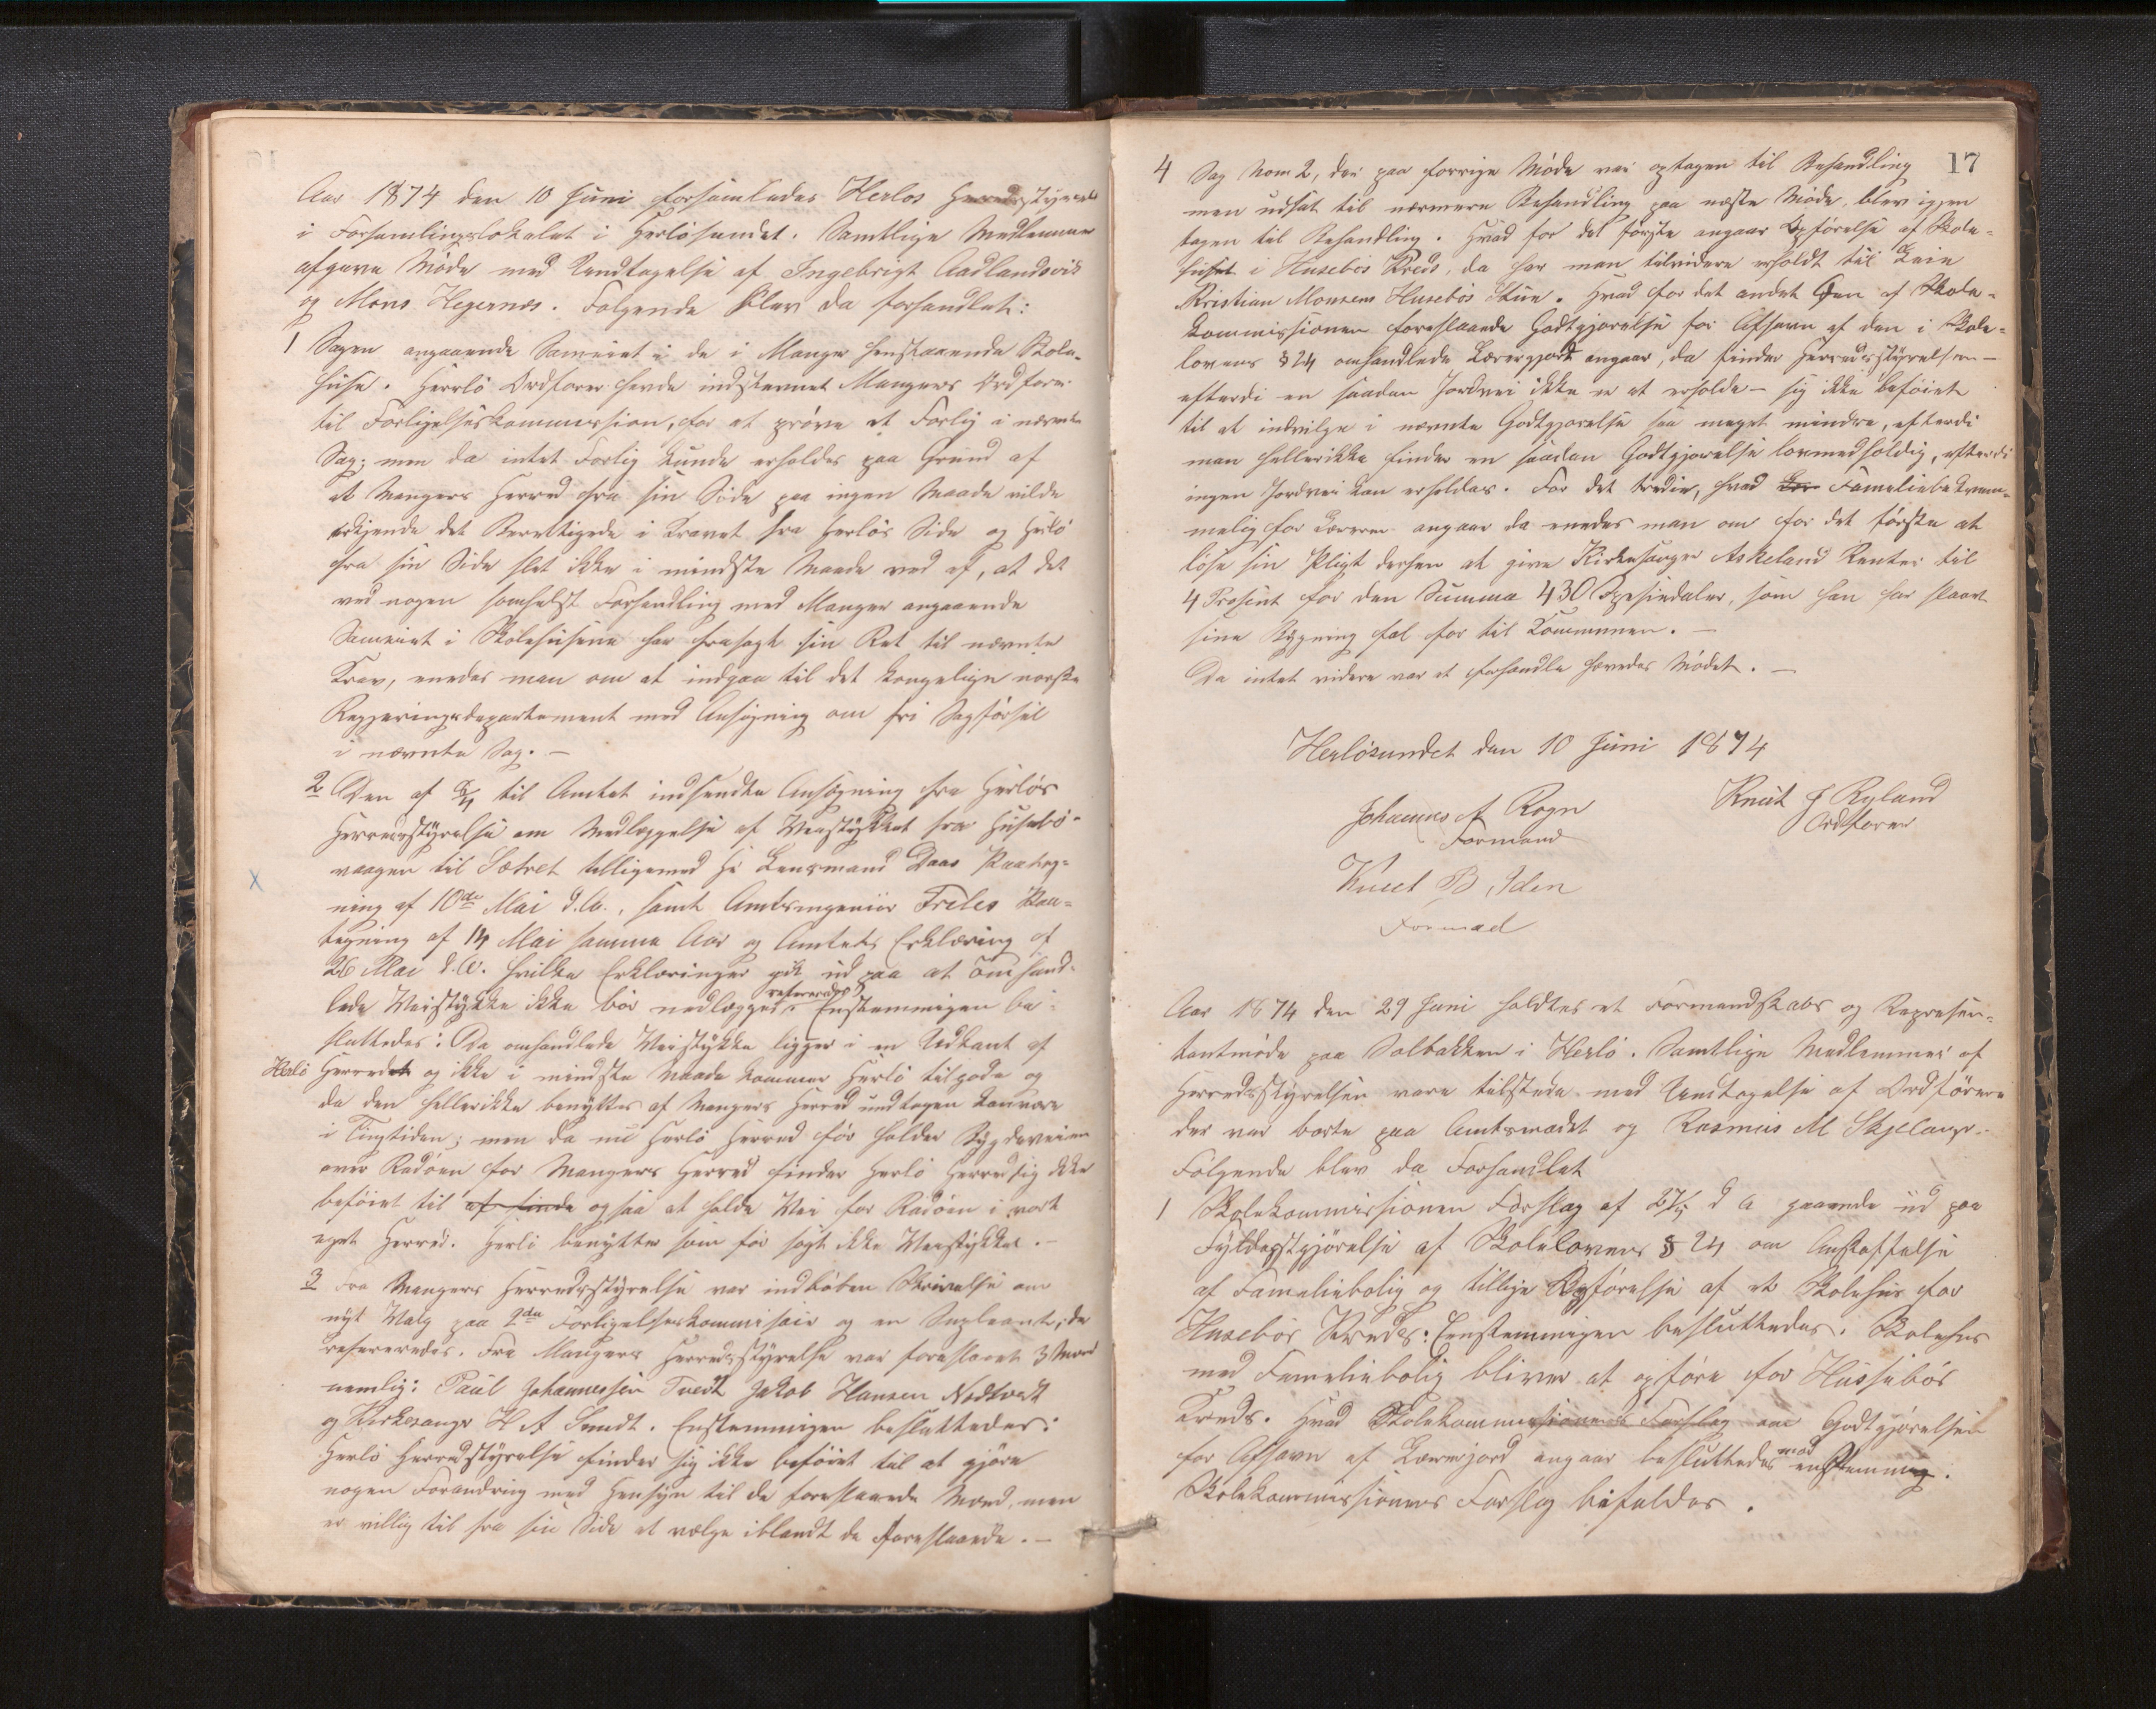 Aar 1874 den 10 Juni forsamledes Herlos Herredsstyrelse
i Forsamlingslokalet i Herlösundet. Samtlige Medlemmer
afgave Møde med Undtagelse af Ingebrigt Aadlandsvik
og Mons Hegernes. Følgende blev da forhandlet:
1 Sagen angaaende Sameiet i de i Manger henstaaende Skole-
huse. Herrlö Ordforer havde indstevnet Mangers Ordforer
til Forligelseskommission, for at pröve et Forlig i nævnte
Sag; men da intet Forlig kunde erholdes paa Grund af
at Mangers Herred fra sin Side paa ingen Maade vilde
erkjende det Berettigede i Kravet fra Herlös Side og Herlö
fra sin Side slet ikke i mindste Maade ved af, at det
ved nogen somhelst Forhandling med Manger angaaende
Sameiet i Skolehusene har frasagt sin Ret til nævnte
Krav, enedes man om at indgaa til det kongelige norske
Regjeringsdepartement med Ansögning om fri Sagförsel
i nævnte Sag. —
2 Den af til Amtet indsendte Ansøgning fra Herlös
Herredsstyrelse om Nedlæggelse af Veistykket fra Husebö-
vaagen til Sætret tilligemed Hr Lensmand Daas Paateg-
ning af 10de Mai d. A., samt Amtsingeniör Freles Paa-
tegning af 14 Mai samme Aar og Amtets Erklæring af
26 Mai d. A. hvilke Erklæringer gik ud paa at omhand-
lede Veistykke ikke bör nedlægges refereredes. Enstemmigen be-
sluttedes: Da omhandlede Veistykke ligger i en Udkant af
Herlö Herredet og ikke i mindste Maade kommer Herlö tilgode og
da den hellerikke benyttes af Mangers Herred undtagen
i Tingtiden; men da nu Herlö Herred för holder Bygdeveien
over Radöen for Mangers Herred finder Herlö Herred sig ikke
beföiet til af finde ogsaa at holde Vei for Radöen i vort
eget Herred. Herlö benytter som för sagt ikke Veistykket. —
3 Fra Mangers Herredsstyrelse var indlöben Skrivelse om
nyt Valg paa 2den Forligelseskommisair og en Supleant; de
refereredes. Fra Mangers Herredsstyrelse var foreslaaet 3 Mænd
nemlig: Paul Johannessen Tvedt Jakob Hansen Nedtvedt
og Kirkesanger H A Smidt. Enstemmigen besluttedes:
Herlö Herredsstyrelse finder sig ikke beföiet til at gjöre
nogen Forandring med Hensyn til de foreslaaede Mænd, men
er villig til fra sin Side at vælge iblandt de Foreslaaede. —
17
4 Sag Nom 2, der paa forrige Møde var optagen til Behandling
men udsat til nærmere Behandling paa næste Møde, blev igjen
tagen til Behandling. Hvad for det förste angaar Opförelse af Skole-
huset i Husebös Kreds, da har man tilvidere erholdt til Leie
Kristian Monsens Husebös Stue. Hvad for det andet den af Skole-
kommissionen foreslaaede Godtgjørelse for Afsavn af den i Skole-
lovens § 24 omhandlede Lærerjord angaar, da finder Herredsstyrelsen —
efterdi en saadan Jordvei ikke er at erholde — sig ikke beföiet
til at indvilge i nævnte Godtgjørelse saa meget mindre, efterdi
man hellerikke finder en saadan Godtgjørelse lovmedholdig, efterdi
ingen Jordvei kan erholdes. For det tredie, hvad for Familiebekvem-
melig for Læreren angaar da enedes man om for det förste at
löse sin Pligt derhen at give Kirkesanger Askeland Renter til
4 Prosent for den Summa 430 Spesiedaler, som han har
sine Bygning fal for til Kommunen. —
Da intet videre var at forhandle hævedes Mödet. —
Herlösundet den 10 Juni 1874
Johannes A Rogn
Formand
Knut J Ryland
Ordforer
Knut B. Iden
Formad
Aar 1874 den 29 Juni holdtes et Formandskabs og Represen-
tantmöde paa Solbakken i Herlö. Samtlige Medlemmer af
Herredsstyrelsen vare tilstede med Undtagelse af Ordförere
der var borte paa Amtsraadet og Rasmus M Skjelanger.
Fölgende blev da Forhandlet
1 Skolekommissionen Forslag af d A gaaende ud paa
Fyldestgjörelse af Skolelovens § 24 om Anskaffelse
af Familiebolig og tillige Opförelse af et Skolehus for
Husebös Kreds: Eenstemmigen besluttedes. Skolehus
med Familiebolig bliver at opföre for Hussebös
Kreds. Hvad Skolekommissionens Forslag om Godtgjörelsen
for Afsavn af Lærerjord angaar besluttedes mod en Stemme.
Skolekommissionens Forslag bifaldes.